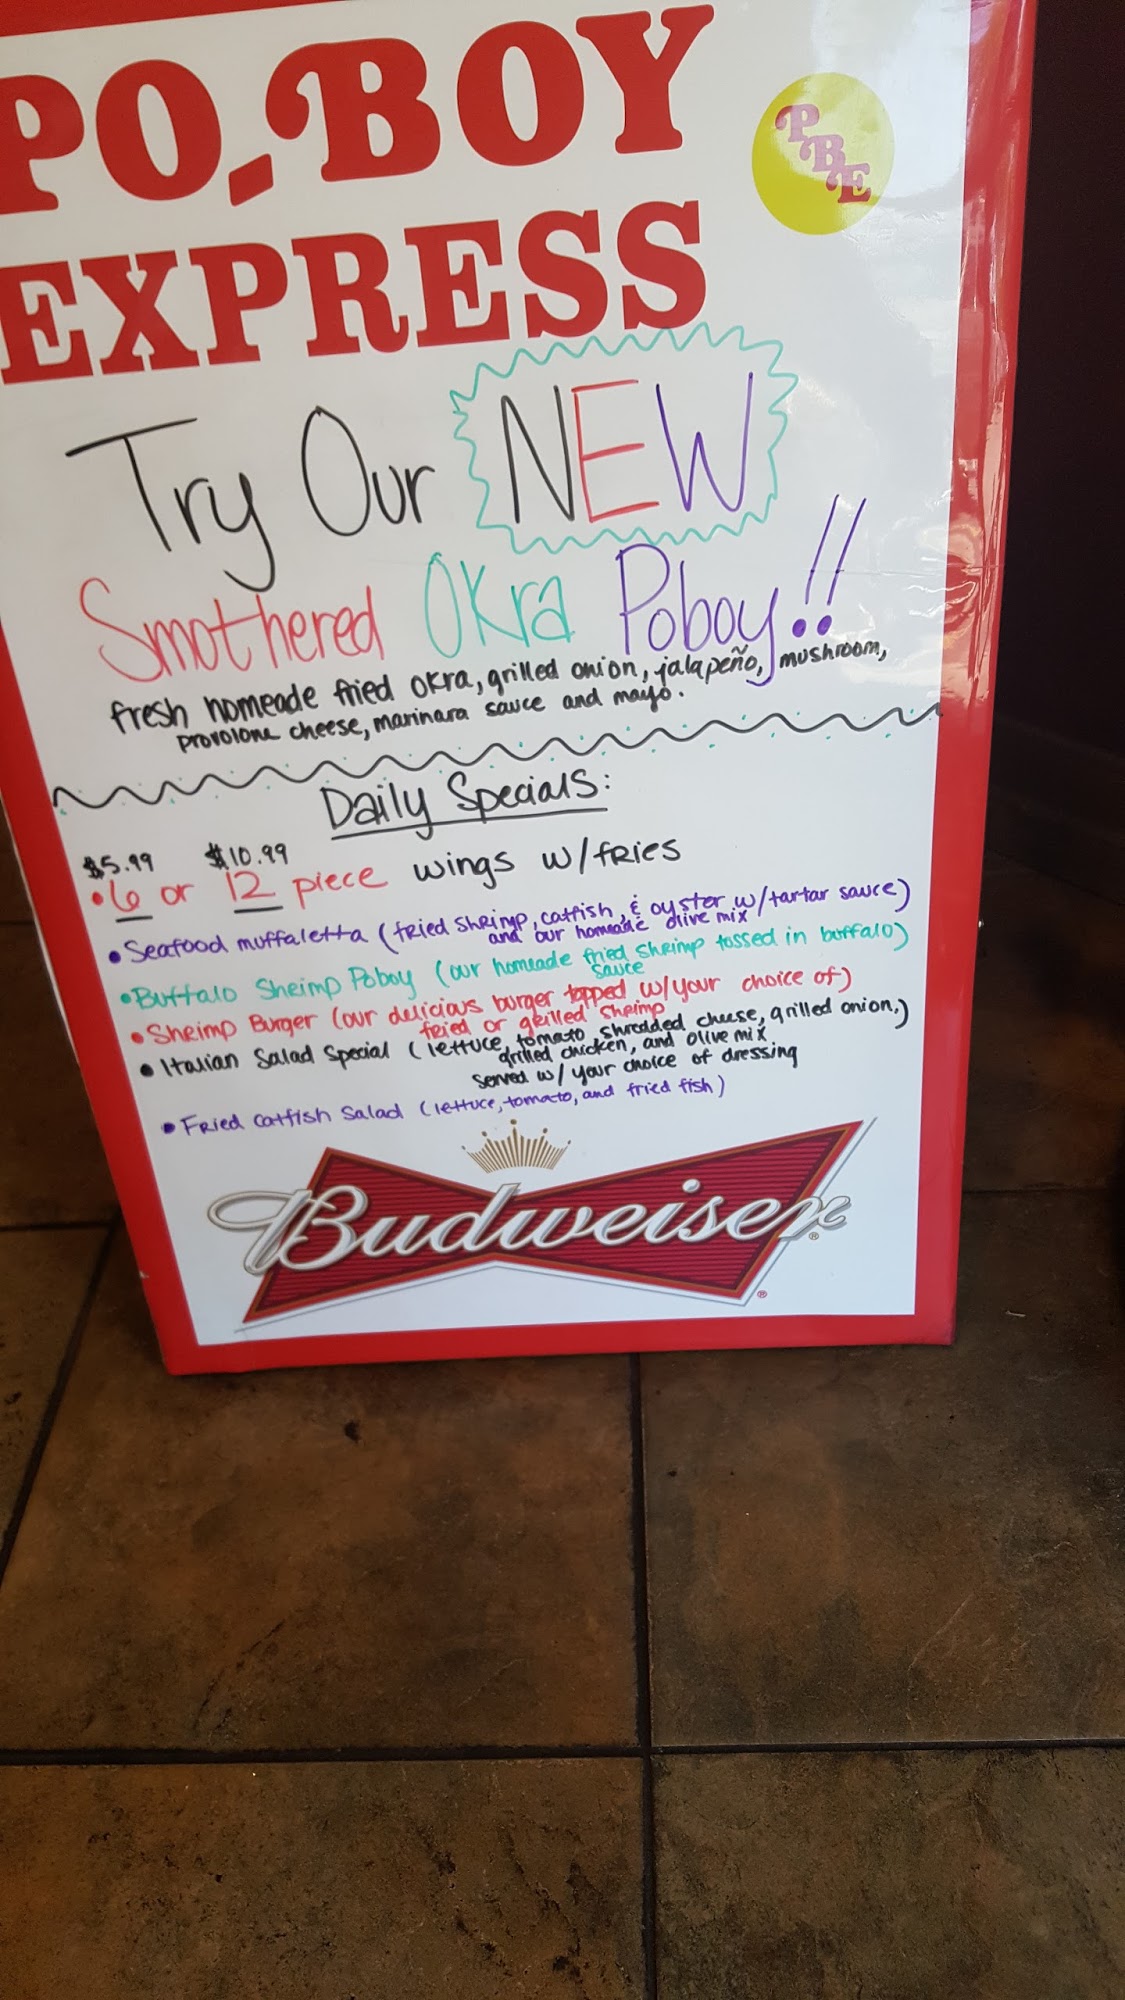 PO-BOY
EXPRESS
PBE
Try Our NEW
Smothered Okra Poboy!!
fresh homeade fried okra, grilled onion, jalapeño, mushroom,
provolone cheese, marinara sauce and mayo.
Daily Specials:
$5.99 $10.99
• 6 or 12 piece wings w/fries
• Seafood muffaletta (fried shrimp, catfish, & oyster w/tartar sauce)
and our homeade olive mix
• Buffalo Shrimp Poboy (our homeade fried shrimp tossed in buffalo)
sauce
• Shrimp Burger (our delicious burger topped w/your choice of)
fried or grilled shrimp
• Italian Salad Special (lettuce, tomato, shredded cheese, grilled onion,)
grilled chicken, and olive mix
served w/ your choice of dressing
• Fried catfish salad (lettuce, tomato, and fried fish)
Budweiser